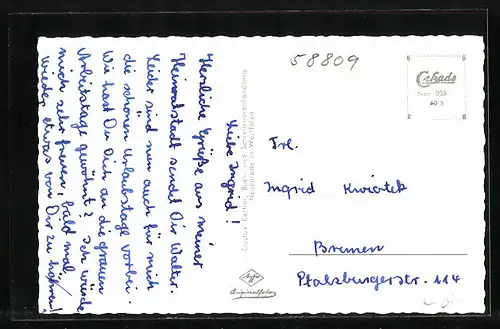 58809
Cekade
Liebe Ingrid!
Herzliche Grüße aus meiner
Heimatstadt sendet Dir Walter.
Leider sind nun auch für mich
die schönen Urlaubstage vorbei.
Wie hast Du Dich an die grauen
Arbeitstage gewöhnt? Ich würde
mich sehr freuen, bald mal
wieder etwas von Dir zu hören!
Buch- und Schreibwarenhandlung
in Westfalen
Frl.
Ingrid Kwiatek
Bremen
Pfalzburgerstr. 114
Agfa
Originalfoto